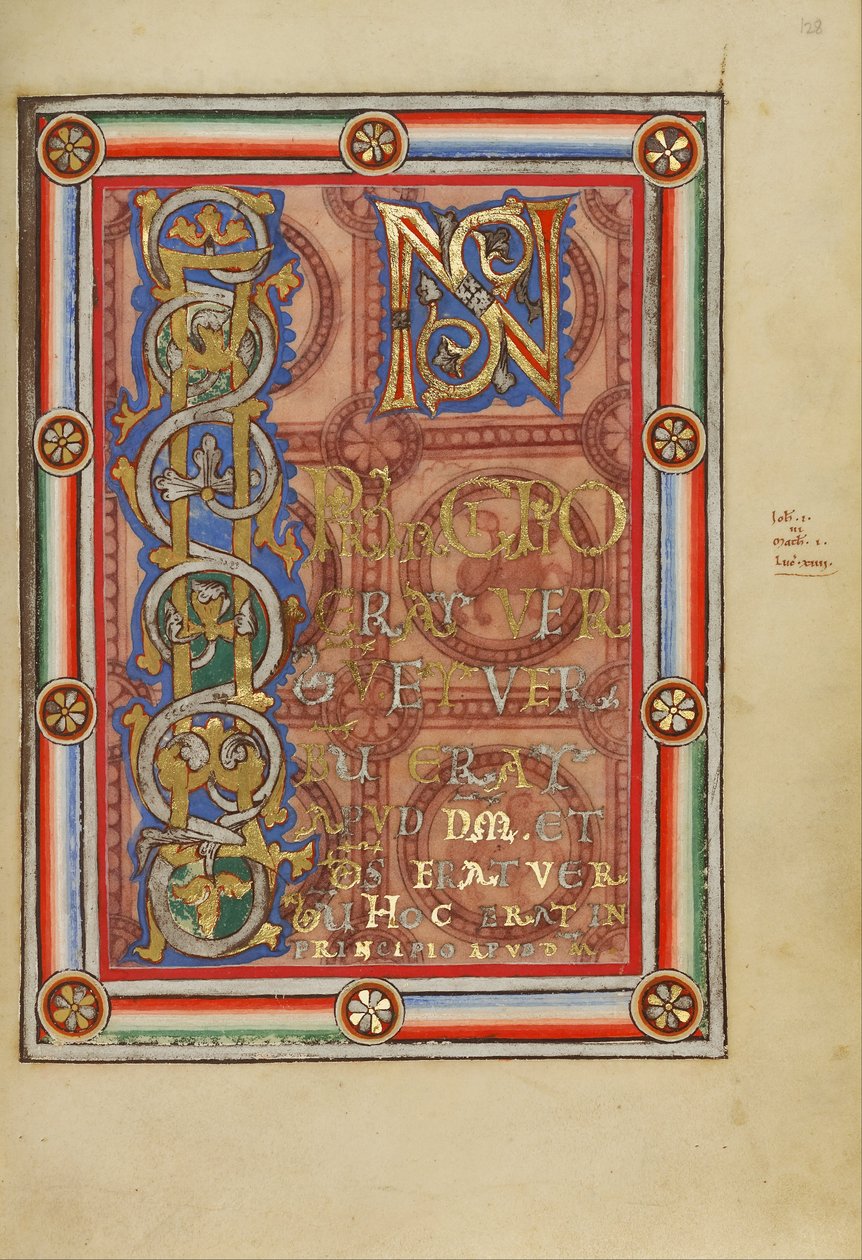 128
IN
PRINCIPIO
ERAT VER
BŪ. ET VER
BŪ ERAT
APVD DM̄. ET
DS̄ ERAT VER
BŪ HOC ERAT IN
PRINCIPIO APVD DM̄
Joh̄ . i .
iii
Math̄ . i .
Luc̄ . xiiii .